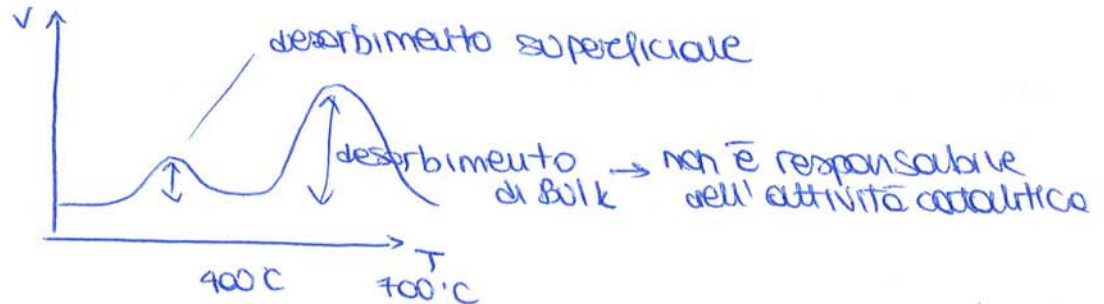 V
desorbimento superficiale
desorbimento → non è responsabile
di Bulk dell'attività catalitica
T
400 C 700°C